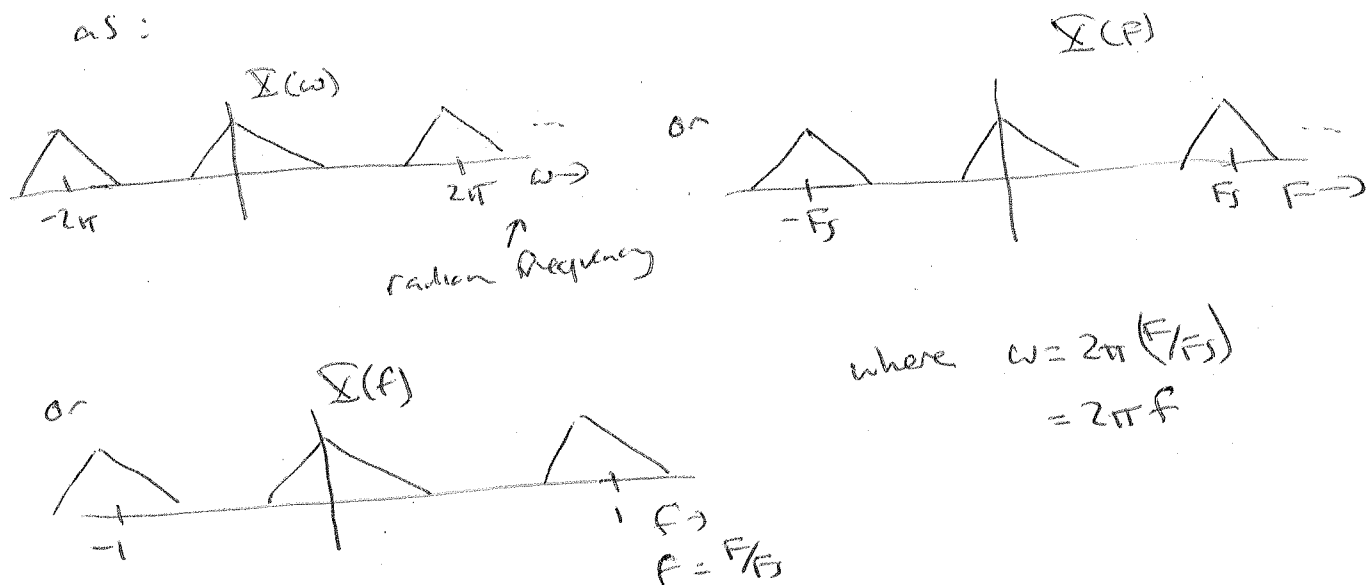 as :
X(ω)
-2π
2π
ω→
...
↑
radian frequency
or
X(F)
-Fs
Fs
F→
...
or
X(f)
-1
1
f→
f = F/Fs
where ω = 2π (F/Fs)
= 2π f